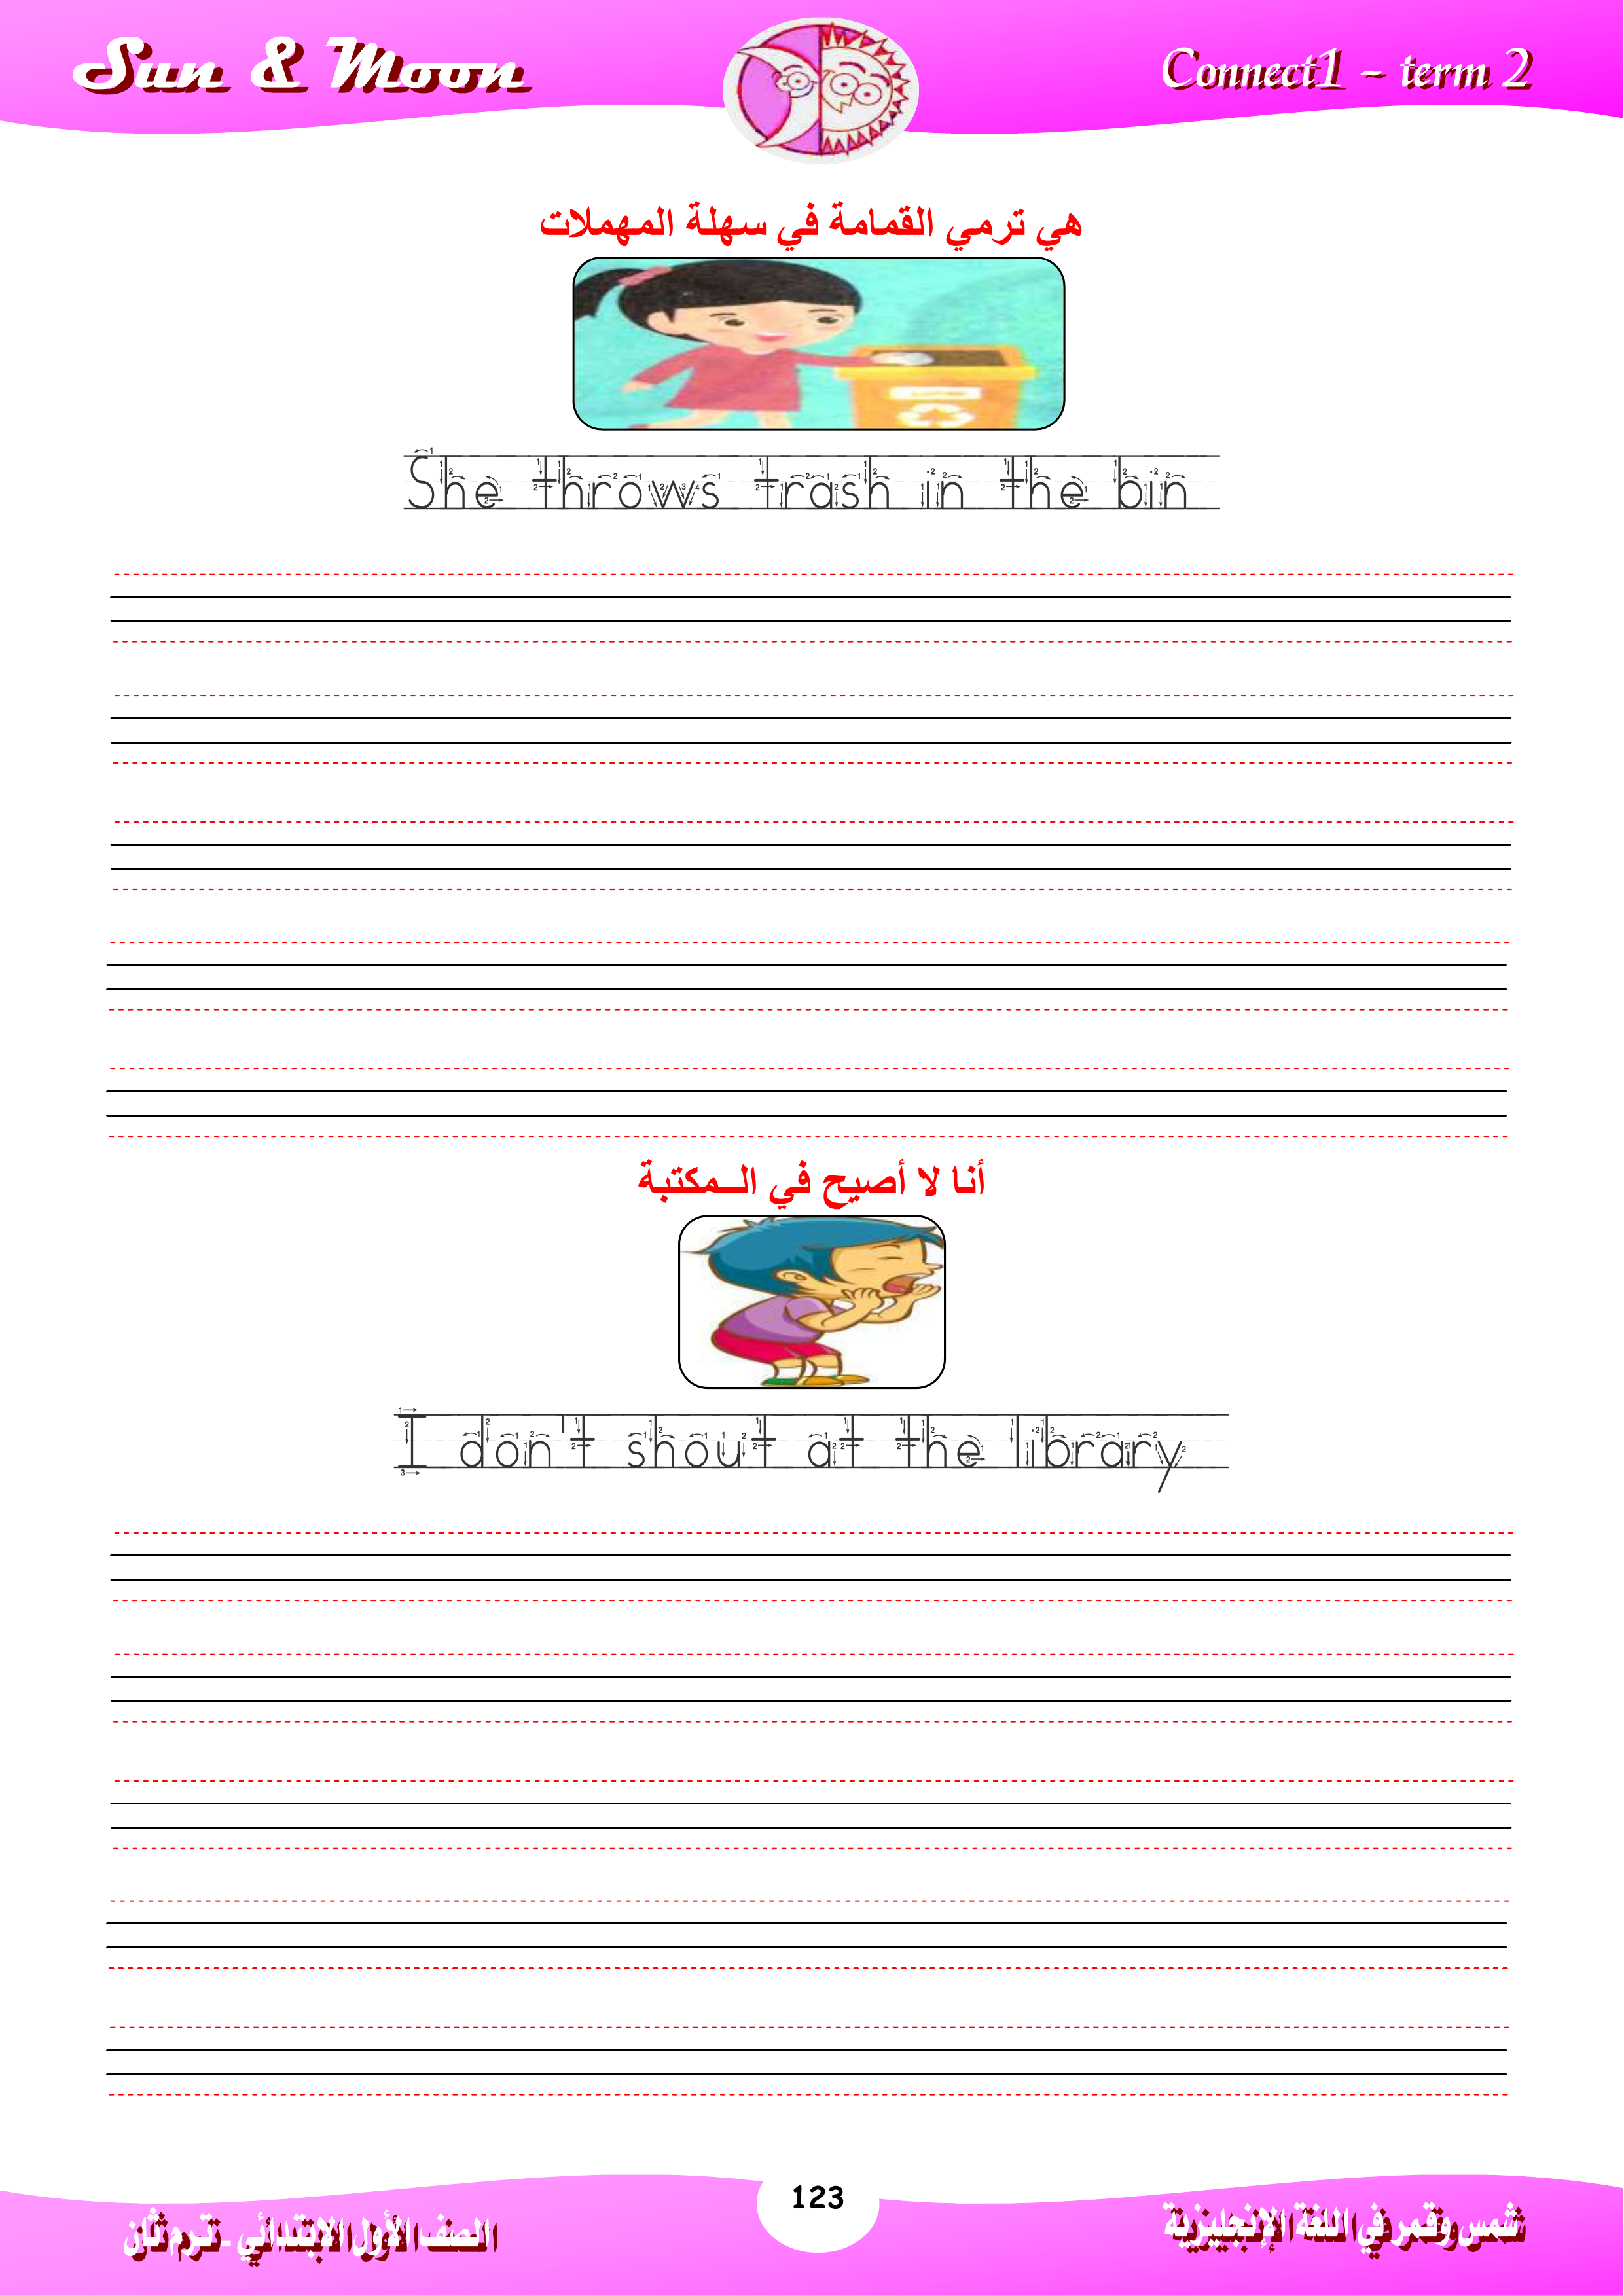 Sun & Moon
Connect1 – term 2
هي ترمي القمامة في سهلة المهملات
She throws trash in the bin
أنا لا أصيح في الـــمكتبة
I don't shout at the library
123
الصف الأول الابتدائي - ترم ثان
شمس وقمر في اللغة الإنجليزية